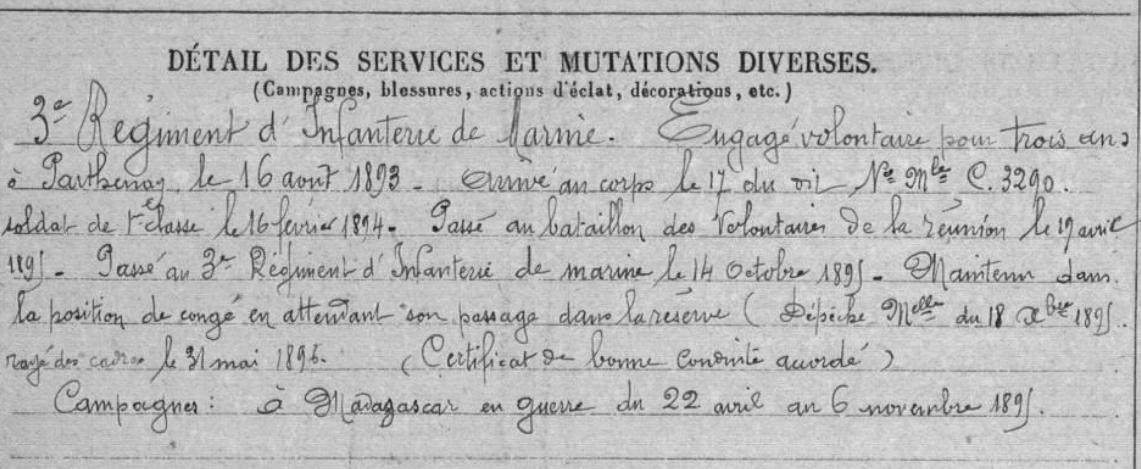 DÉTAIL DES SERVICES ET MUTATIONS DIVERSES.
(Campagnes, blessures, actions d'éclat, décorations, etc.)
3e Régiment d'Infanterie de Marine. Engagé volontaire pour trois ans
à Parthenay, le 16 août 1893 - Arrivé au corps le 17 du dit No Mle C. 3290.
soldat de 1e classe le 16 février 1894 - Passé au bataillon des Volontaires de la réunion le 19 avril
1895 - Passé au 3e Régiment d'Infanterie de marine le 14 Octobre 1895 - Maintenu dans
la position de congé en attendant son passage dans la réserve (Dépêche Melle du 18 Xbre 1895.
rayé des cadres le 31 mai 1896. (Certificat de bonne conduite accordé)
Campagnes : à Madagascar en guerre du 22 avril au 6 novembre 1895.